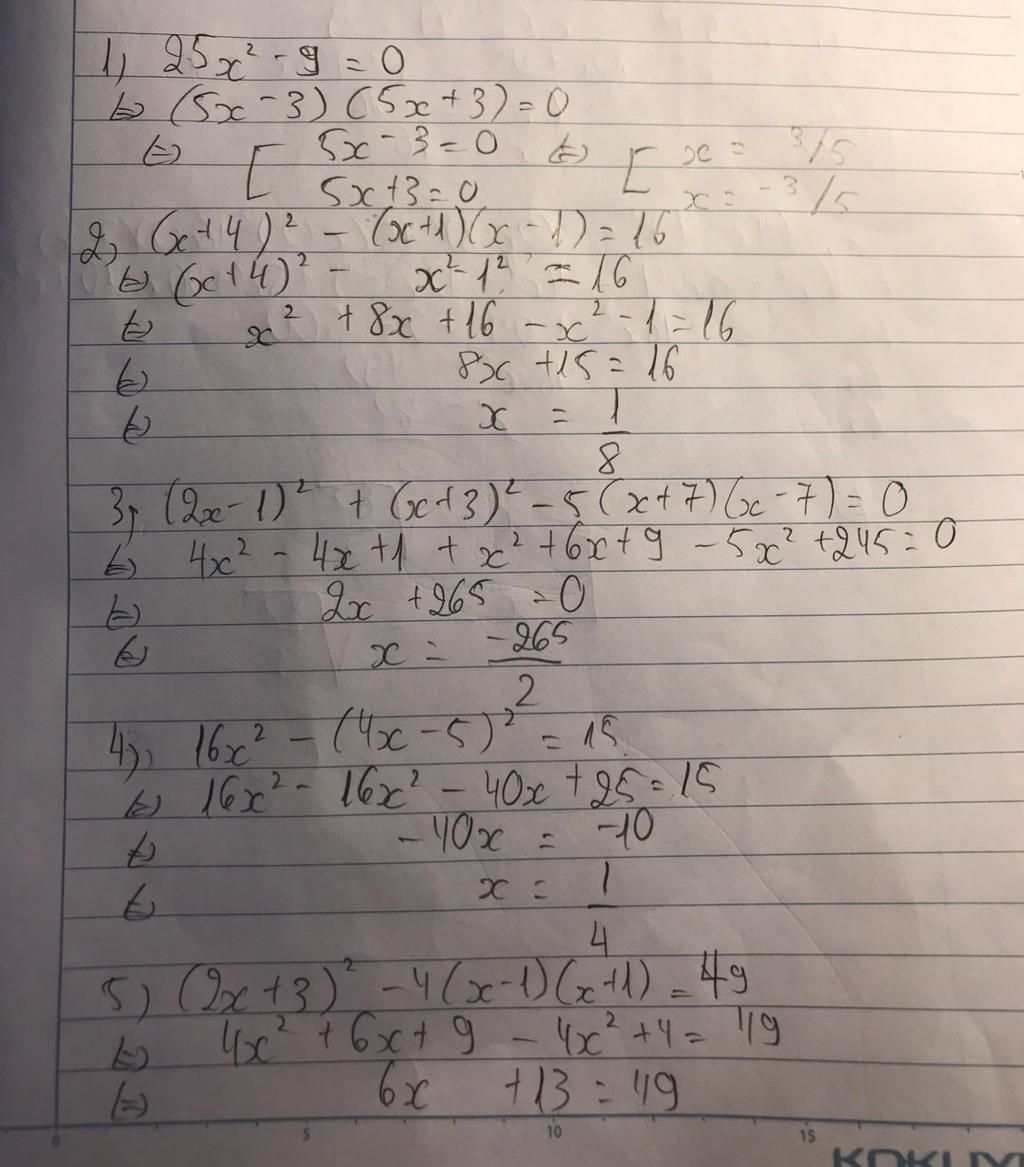 1) 25x² - 9 = 0
⇔ (5x - 3)(5x + 3) = 0
⇔ [ 5x - 3 = 0 ⇔ [ x = 3/5
5x + 3 = 0 x = -3/5
2) (x + 4)² - (x+1)(x - 1) = 16
⇔ (x+4)² - x² - 1² = 16
⇔ x² + 8x + 16 - x² - 1 = 16
⇔ 8x + 15 = 16
⇔ x = 1/8
3) (2x - 1)² + (x+3)² - 5(x+7)(x-7) = 0
⇔ 4x² - 4x + 1 + x² + 6x + 9 - 5x² + 245 = 0
⇔ 2x + 265 = 0
⇔ x = -265/2
4) 16x² - (4x - 5)² = 15
⇔ 16x² - 16x² - 40x + 25 = 15
⇔ -40x = -10
⇔ x = 1/4
5) (2x + 3)² - 4(x-1)(x+1) = 49
⇔ 4x² + 6x + 9 - 4x² + 4 = 49
⇔ 6x + 13 = 49
0 5 10 15